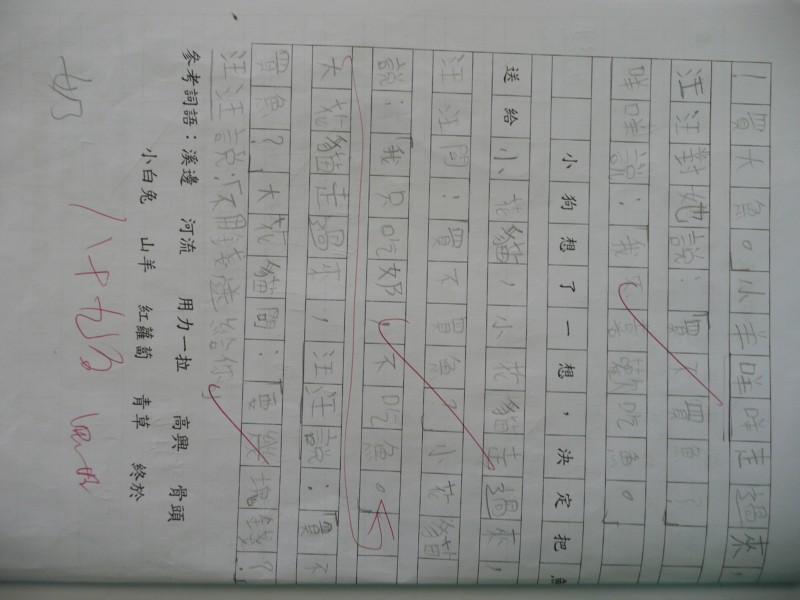 ！買大魚。」小羊咩咩走過來，
汪汪對她說：「買不買魚？」
咩咩說：「我不喜歡吃魚。」
小狗想了一想，決定把魚
送給小花貓，小花貓走過來，
汪汪問：買不買魚？」小花貓
說：「我只吃奶，不吃魚。」
大花貓走過來，汪汪說：「買不
買魚？」大花貓問：「要幾塊錢？」
汪汪說：「不用錢送給你」
參考詞語：溪邊 河流 用力一拉 高興 骨頭
小白兔 山羊 紅蘿蔔 青草 終於
奶